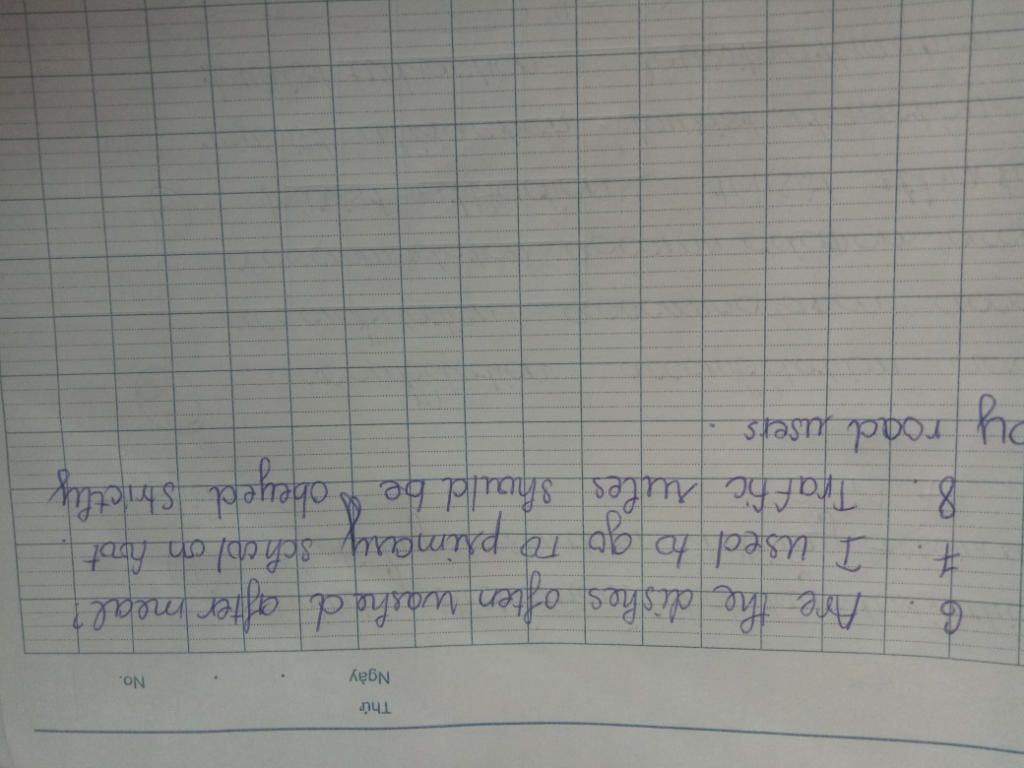 Thứ
Ngày . . No.
6. Are the dishes often washed after meal?
7. I used to go to primary school on foot.
8. Traffic rules should be obeyed strictly
by road users.